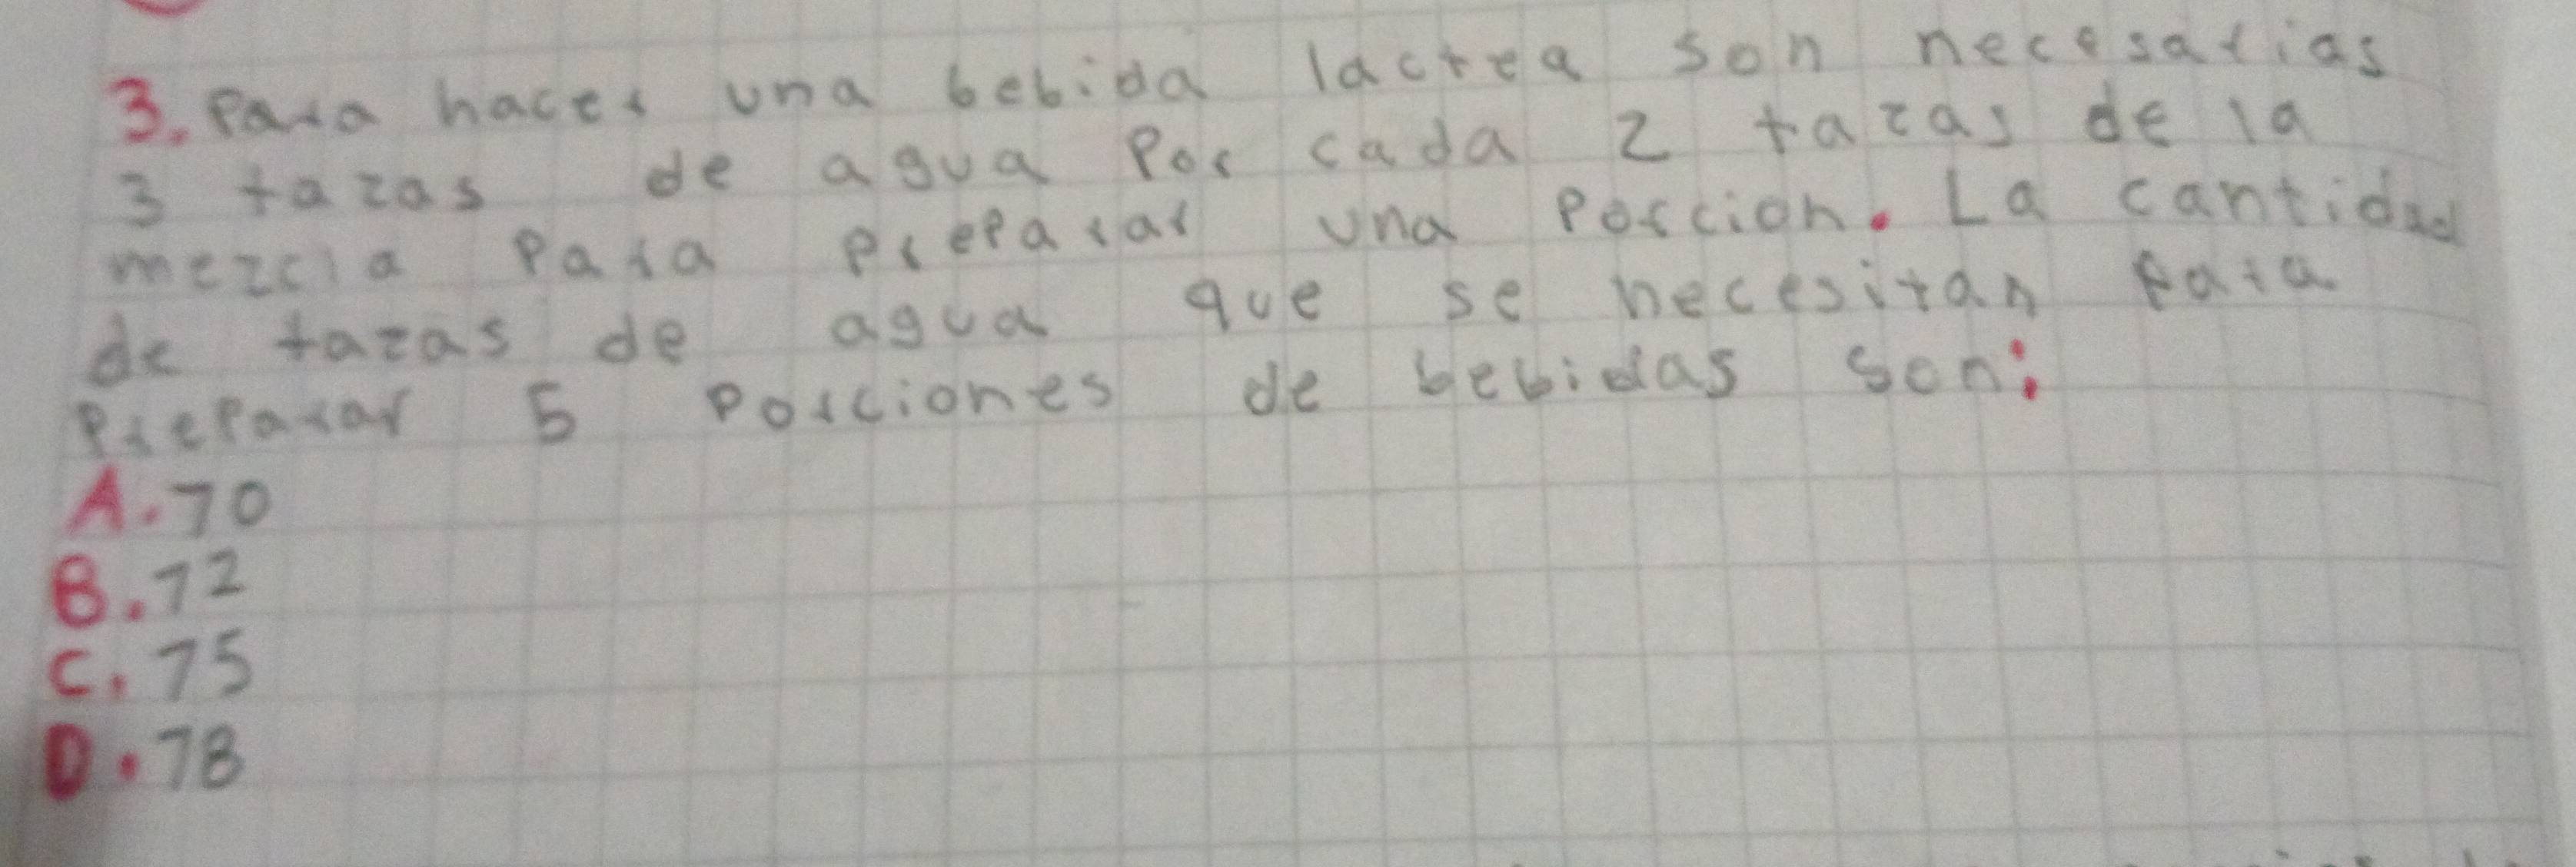 3. Para hacer una bebida lactea son necesarias
3 tazas de agua Por cada 2 tazas de la
mezcla Para preparar una Porcion. La cantidad
de tazas de agua que se necesitan Para
Preparar 5 Porciones de bebidas son:
A. 70
B. 72
C. 75
D. 78